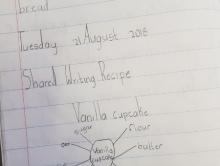 bread
Tuesday 21 August 2018
Shared Writing Recipe
Vanilla cupcake
sugar
flour
butter
Vanilla
cupcake